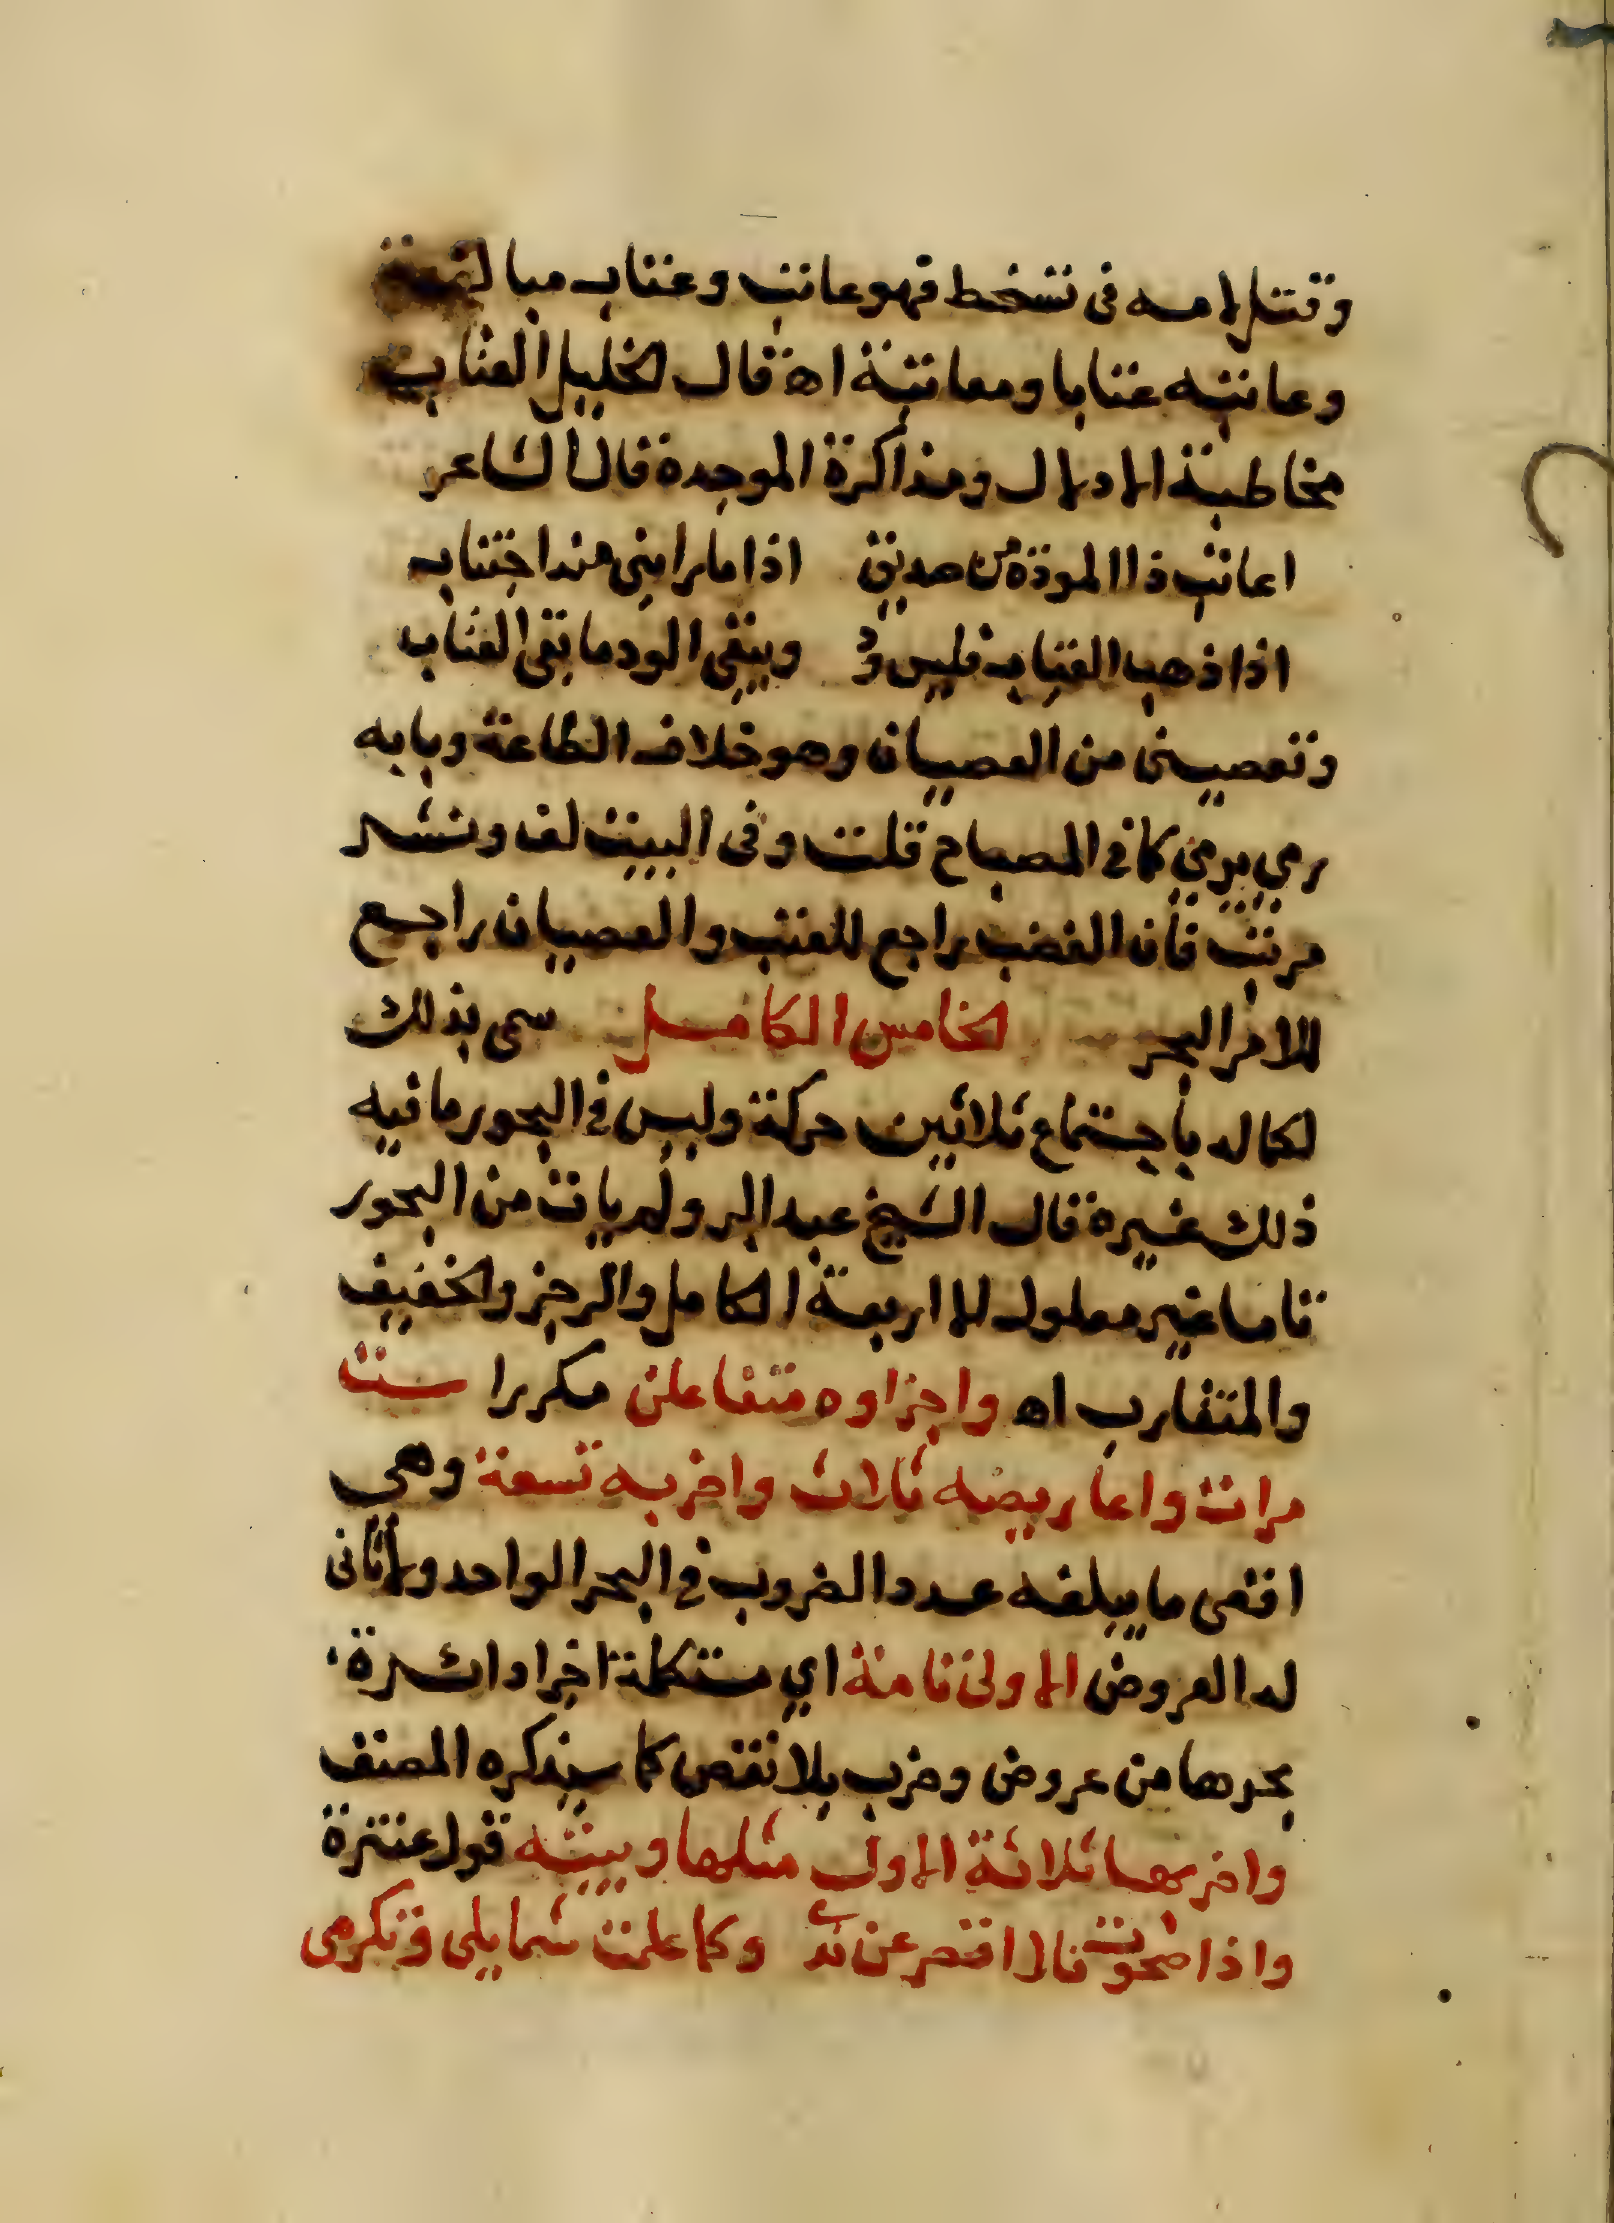 وقتل لامه في تسخط فهو عاتب وعتاب مبالغة
وعاتبته عتابا ومعاتبة اه قال الخليل العتاب
مخاطبة الادلال ومذاكرة الموجدة قال الشاعر
اعاتب ذا المودة من صديق اذا ما رابني منه اجتناب
اذا ذهب العتاب فليس ود ويبقى الود ما بقى العتاب
وتعصيني من العصيان وهو خلاف الطاعة وبابه
رمي يرمي كما في المصباح قلت وفي البيت لف ونشر
مرتب فان الغضب راجع للعتب والعصيان راجع
للامر البحر الخامس الكامل سمى بذلك
لكماله باجتماع ثلاثين حركة وليس في البحور ما فيه
ذلك غيره قال الشيخ عبد البر ولم يات من البحور
تاما غير معلول الا اربعة الكامل والرجز والخفيف
والمتقارب اه واجزاوه متفاعلن مكررا ست
مرات واعاريضه ثلاث واضربه تسعة وهي
اقصى ما يبلغه عدد الضروب في البحر الواحد ولا ثاني
له العروض الاولى تامة اي مستكملة اجزا دائرة
بحرها من عروض وضرب بلا نقص كما سيذكره المصنف
واضربها ثلاثة الاول مثلها وبيته قول عنترة
واذا صحوت فلا اقصر عن ندى وكما علمت شمايلي وتكرمى